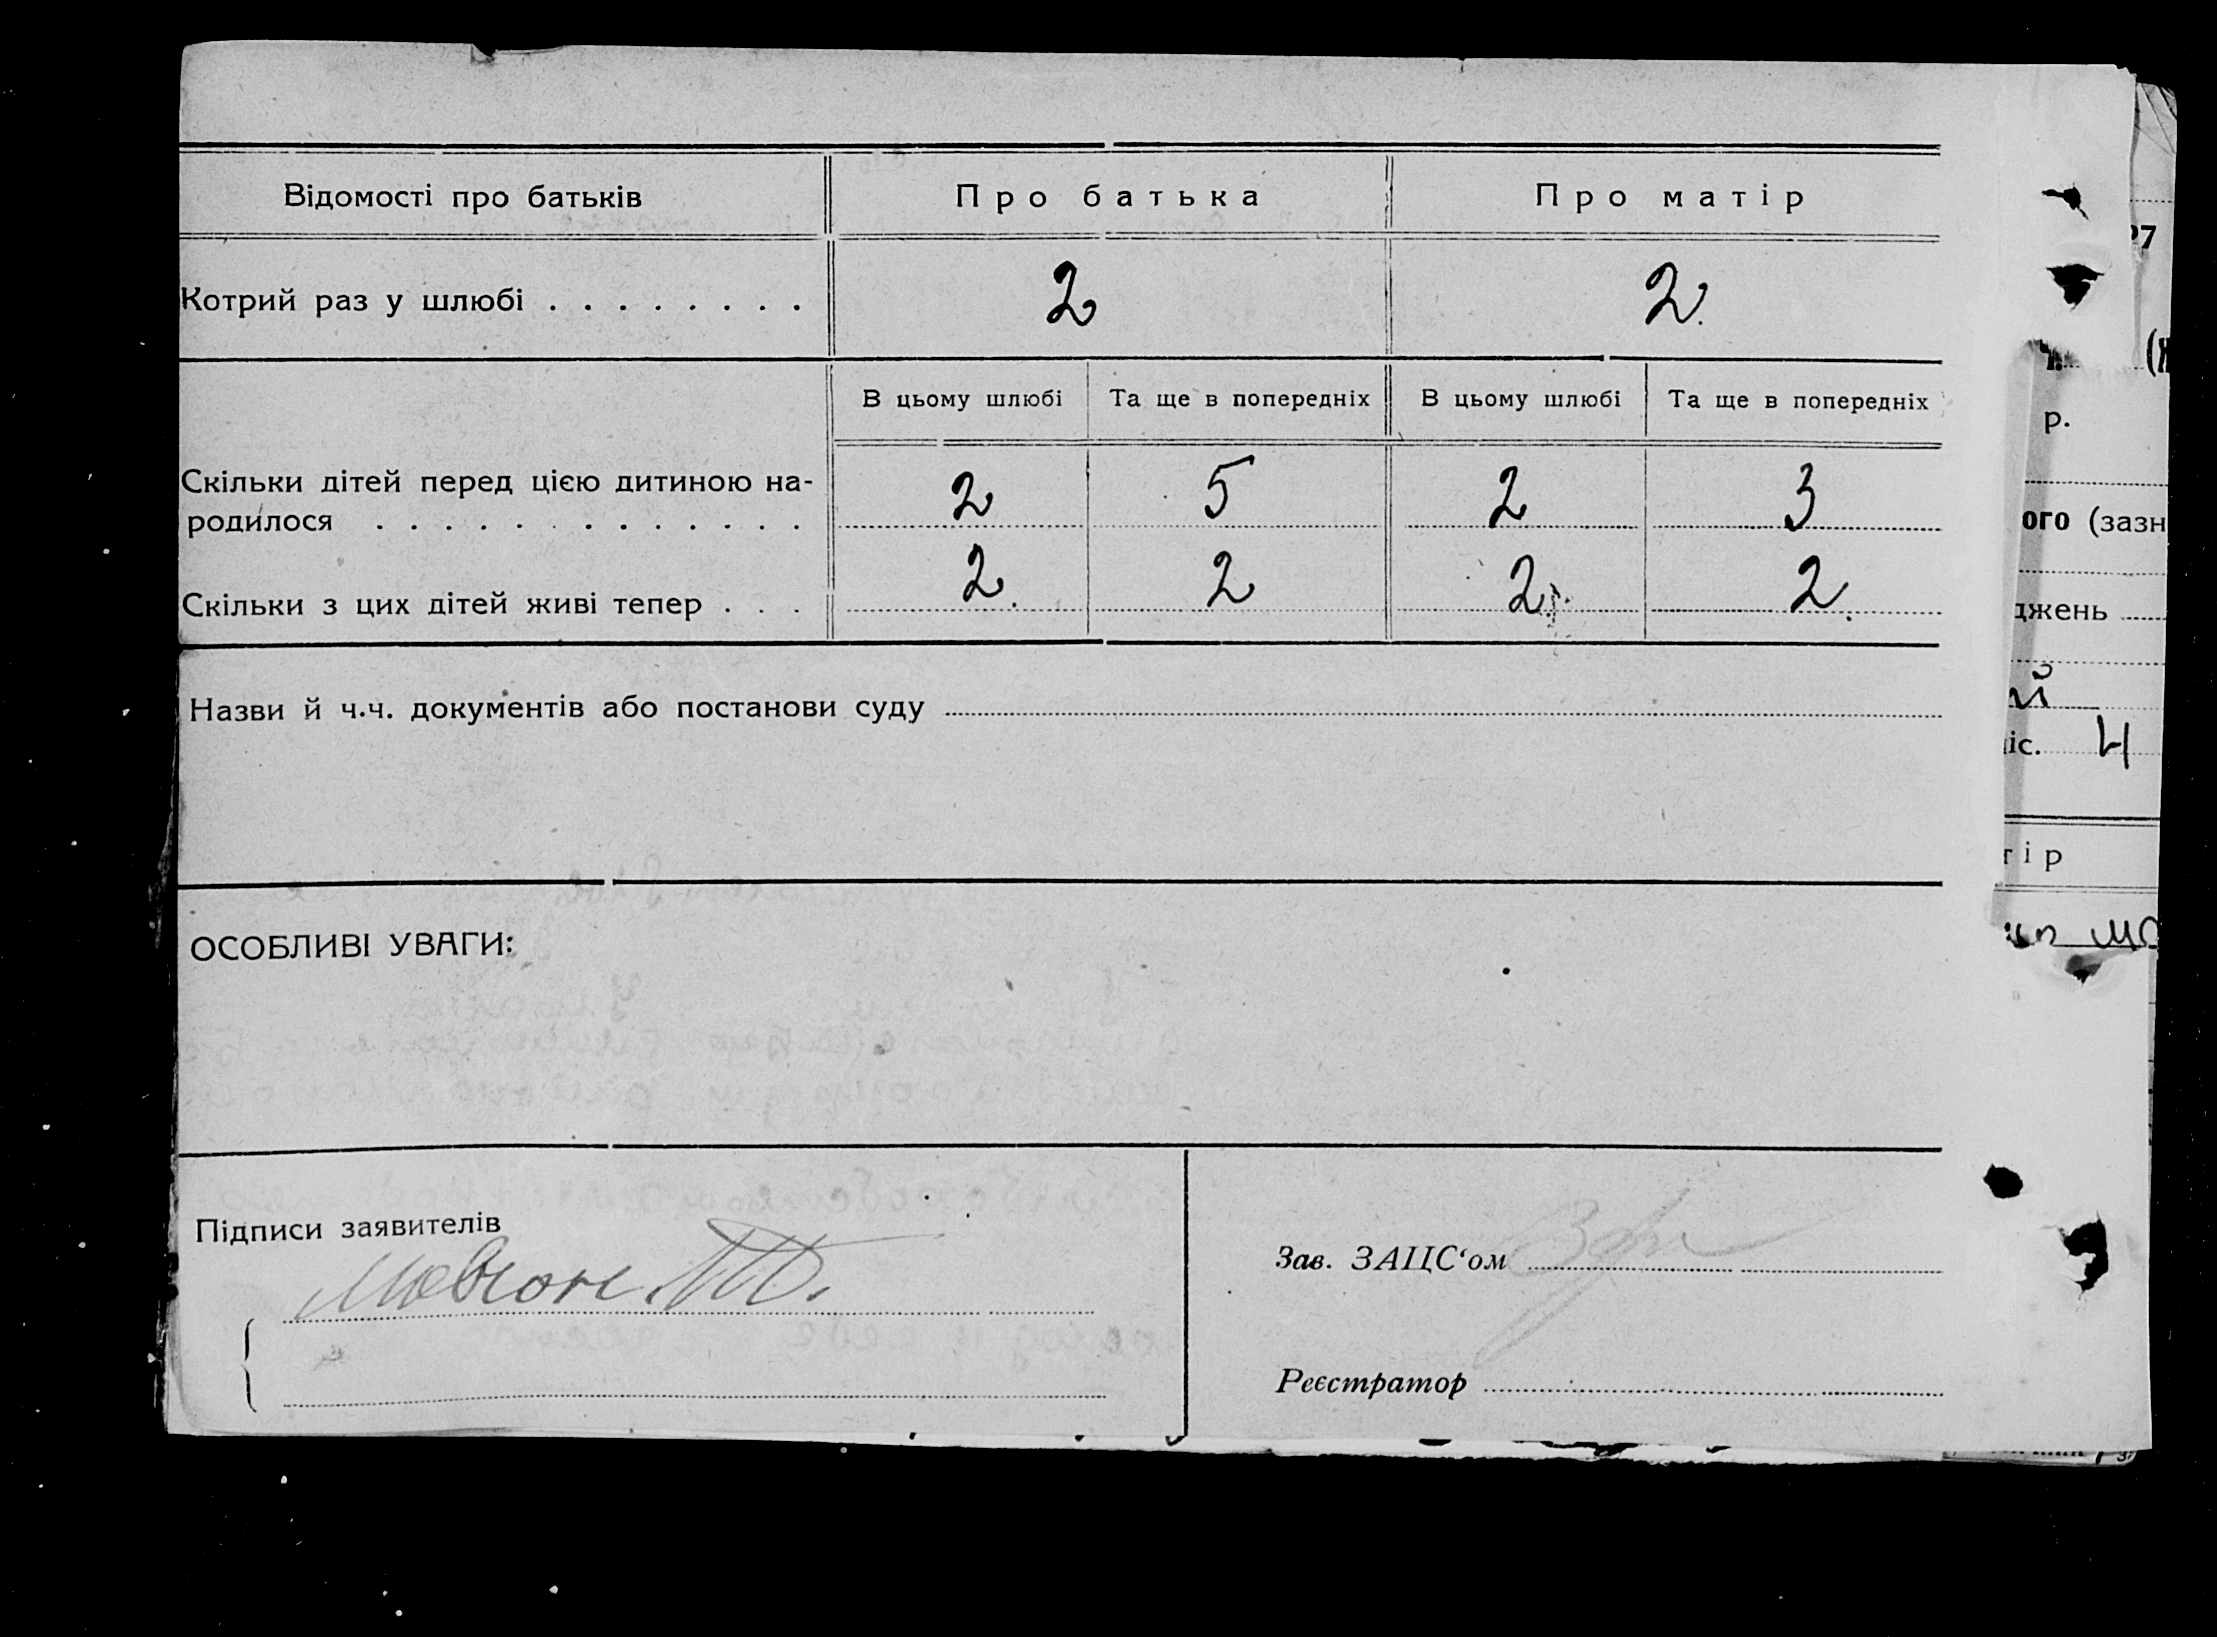 Відомості про батьків Про батька Про матір
Котрий раз у шлюбі . . . . . . . . 2 2.
В цьому шлюбі Та ще в попередніх В цьому шлюбі Та ще в попередніх
Скільки дітей перед цією дитиною на-
родилося . . . . . . . . . . . . . 2 5 2 3
Скільки з цих дітей живі тепер . . . 2. 2 2. 2.
Назви й ч.ч. документів або постанови суду
ОСОБЛИВІ УВАГИ:
Підписи заявителів
Зав. ЗАЦС‘ом
Реєстратор
р.
ого (зазн
джень
ій
іс. 4
тір